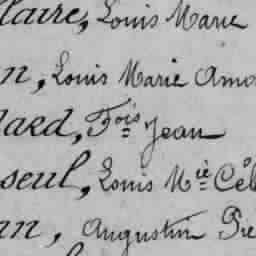 laire, Louis Marie
n, Louis Marie Amo
lard, Fois Jean
seul, Louis Mie Cél
an, Augustin Pie